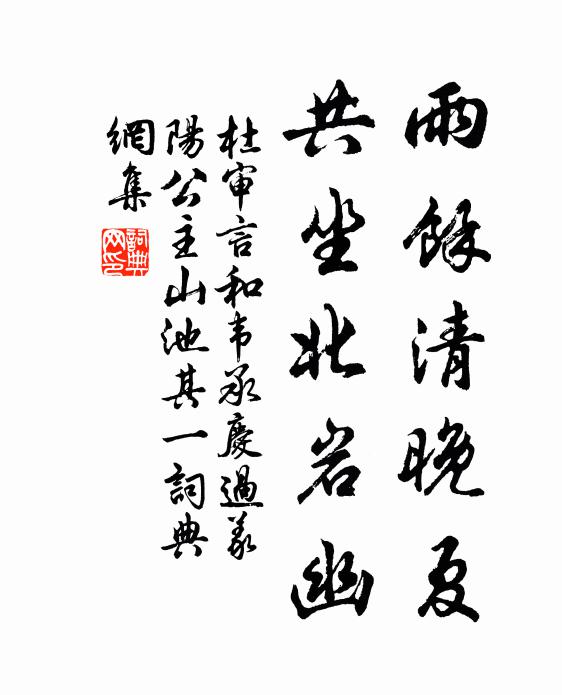 雨餘清晚夏
共坐北岩幽
杜审言和韦承慶過義
陽公主山池其一詞典
網集
詞典
网印